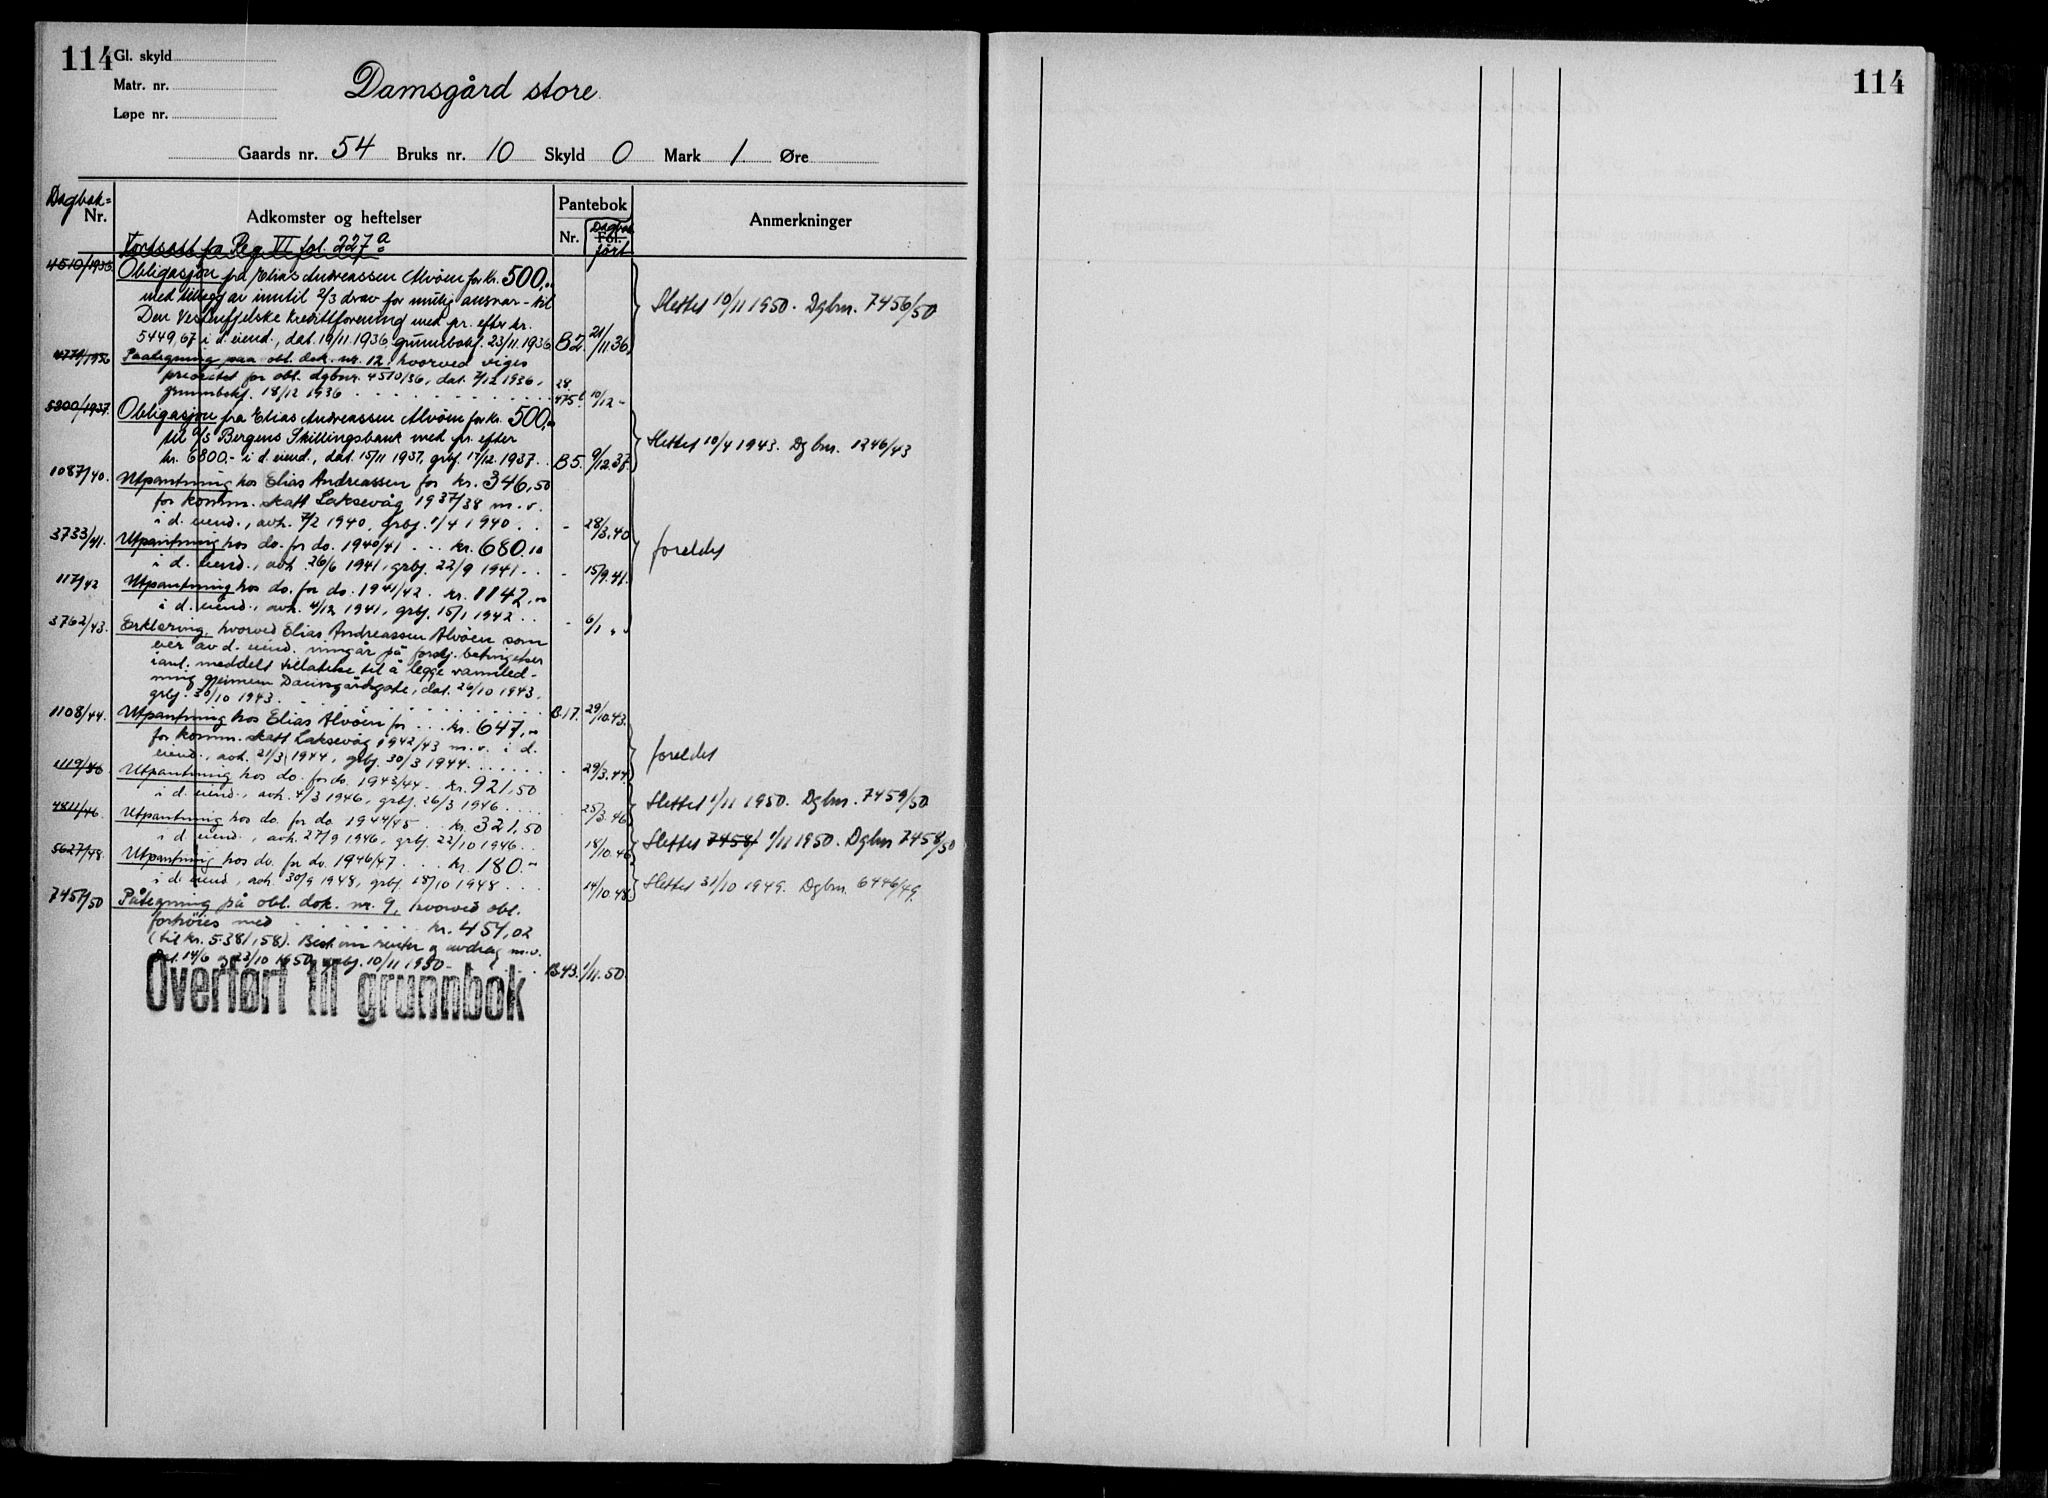 114
Gl. skyld
Matr. nr.
Løpe nr.
Damsgård store.
Gaards nr. 54 Bruks nr. 10 Skyld 0 Mark 1. Øre
Dagbok-Nr.
Adkomster og heftelser
Pantebok
Nr.
Fol.
Dagbok ført
Anmerkninger
Fortsatt fra Reg. VI fol. 227a
4510/1936 Obligasjon fra Elias Andreassen Alvøen for kr. 500,-
med tillegg av inntil 2/3 derav for mulig ansvar - til
Den Vestenfjelske Kredittforening med pr. efter kr.
5449,67 i d. eiend., dat. 19/11 1936, grunnbokf. 23/11 1936. B2. 21/11.36.
Slettet 10/11 1950. Dgbnr. 7456/50
4771/1936 Paategning paa obl. dok. nr. 12, hvorved viges
prioritet for obl. dgbnr. 4510/36, dat. 7/12 1936,
grunnbokf. 18/12 1936 28. 475b 10/12 -
5300/1937. Obligasjon fra Elias Andreassen Alvøen for kr. 500,-
til A/S Bergens Skillingsbank med pr. efter
kr. 6800.- i d. eiend., dat. 15/11 1937, grbf. 17/12 1937. B5. 9/12.37.
Slettet 10/4 1943. Dgbnr. 1246/43
1087/40. Utpantning hos Elias Andreassen for kr. 346,50
for komm. skatt Laksevåg 1937/38 m.v.
i d. eiend., avh. 7/2 1940, grbf. 1/4 1940 . . - 28/3.40
3733/41. Utpantning hos do. for do. 1940/41 . . . kr. 680.10
i d. eiend., avh. 26/6 1941, grbf. 22/9 1941 . . - 15/9.41.
foreldet
117/42 Utpantning hos do. for do. 1941/42 . kr. 1142,-
i d. eiend., avh. 4/12 1941, grbf. 15/1 1942 . . - 6/1 "
3762/43. Erklæring, hvorved Elias Andreassen Alvøen som
eier av d. eiend. inngår på forskj. betingelser
ianl. meddelt tillatelse til å legge vannled-
ning gjennem Damsgårdsgate, dat. 26/10 1943,
grbf. 30/10 1943. B.17. 29/10.43.
1108/44. Utpantning hos Elias Alvøen for . . . kr. 647,-
for komm. skatt Laksevåg 1942/43 m.v. i d.
eiend., avh. 21/3 1944, grbf. 30/3 1944. - 29/3.44.
foreldet
1119/46 Utpantning hos do. for do. 1943/44 . kr. 921,50
i d. eiend., avh. 4/3 1946, grbf. 26/3 1946 . . . . 25/3.46
Slettet 1/11 1950. Dgbnr. 7459/50
4811/46. Utpantning hos do. for do. 1944/45 . . kr. 321,50
i d. eiend., avh. 27/9 1946, grbf. 22/10 1946 . . 18/10.46
Slettet 7458/ 1/11 1950. Dgbnr 7458/50
5627/48. Utpantning hos do. for do. 1946/47 . . . kr. 180.-
i d. eiend., avh. 30/9 1948, grbf. 18/10 1948 . . . . 14/10.48
Slettet 31/10 1949. Dgbnr. 6446/49.
7457/50 Påtegning på obl. dok. nr. 9, hvorved obl.
forhøies med . . . . . . . kr. 454,02
(til kr. 5.381,58). Best om renter og avdrag m.v.
Dat. 14/6 og 23/10 1950, grbf. 10/11 1950 - . . . B.43. 1/11.50.
Overført til grunnbok
114